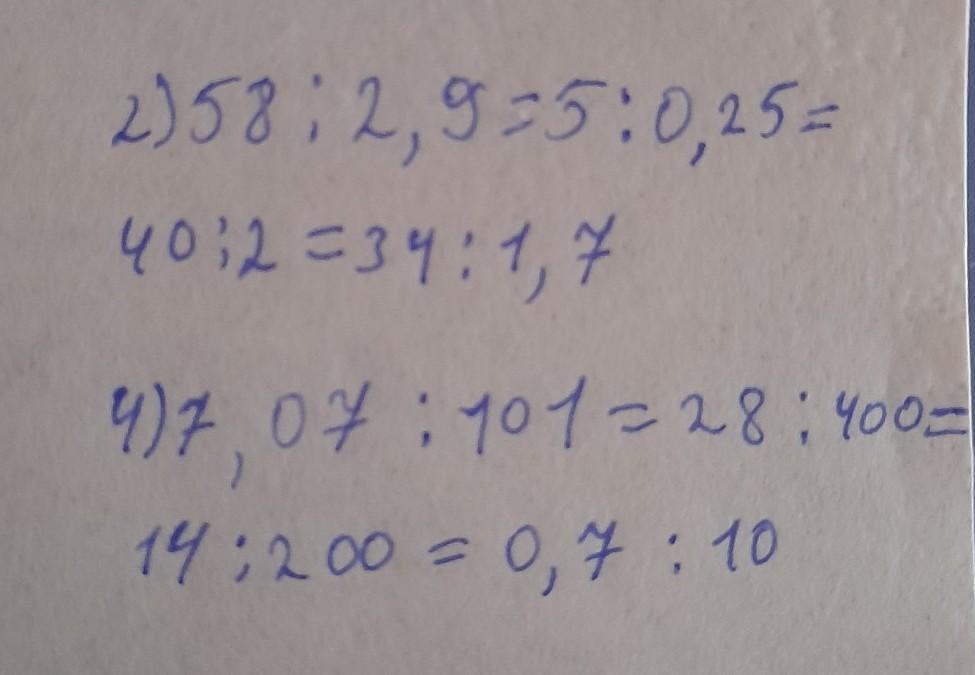 2) 58 : 2,9 = 5 : 0,25 =
40 : 2 = 34 : 1,7
4) 7,07 : 101 = 28 : 400 =
14 : 200 = 0,7 : 10